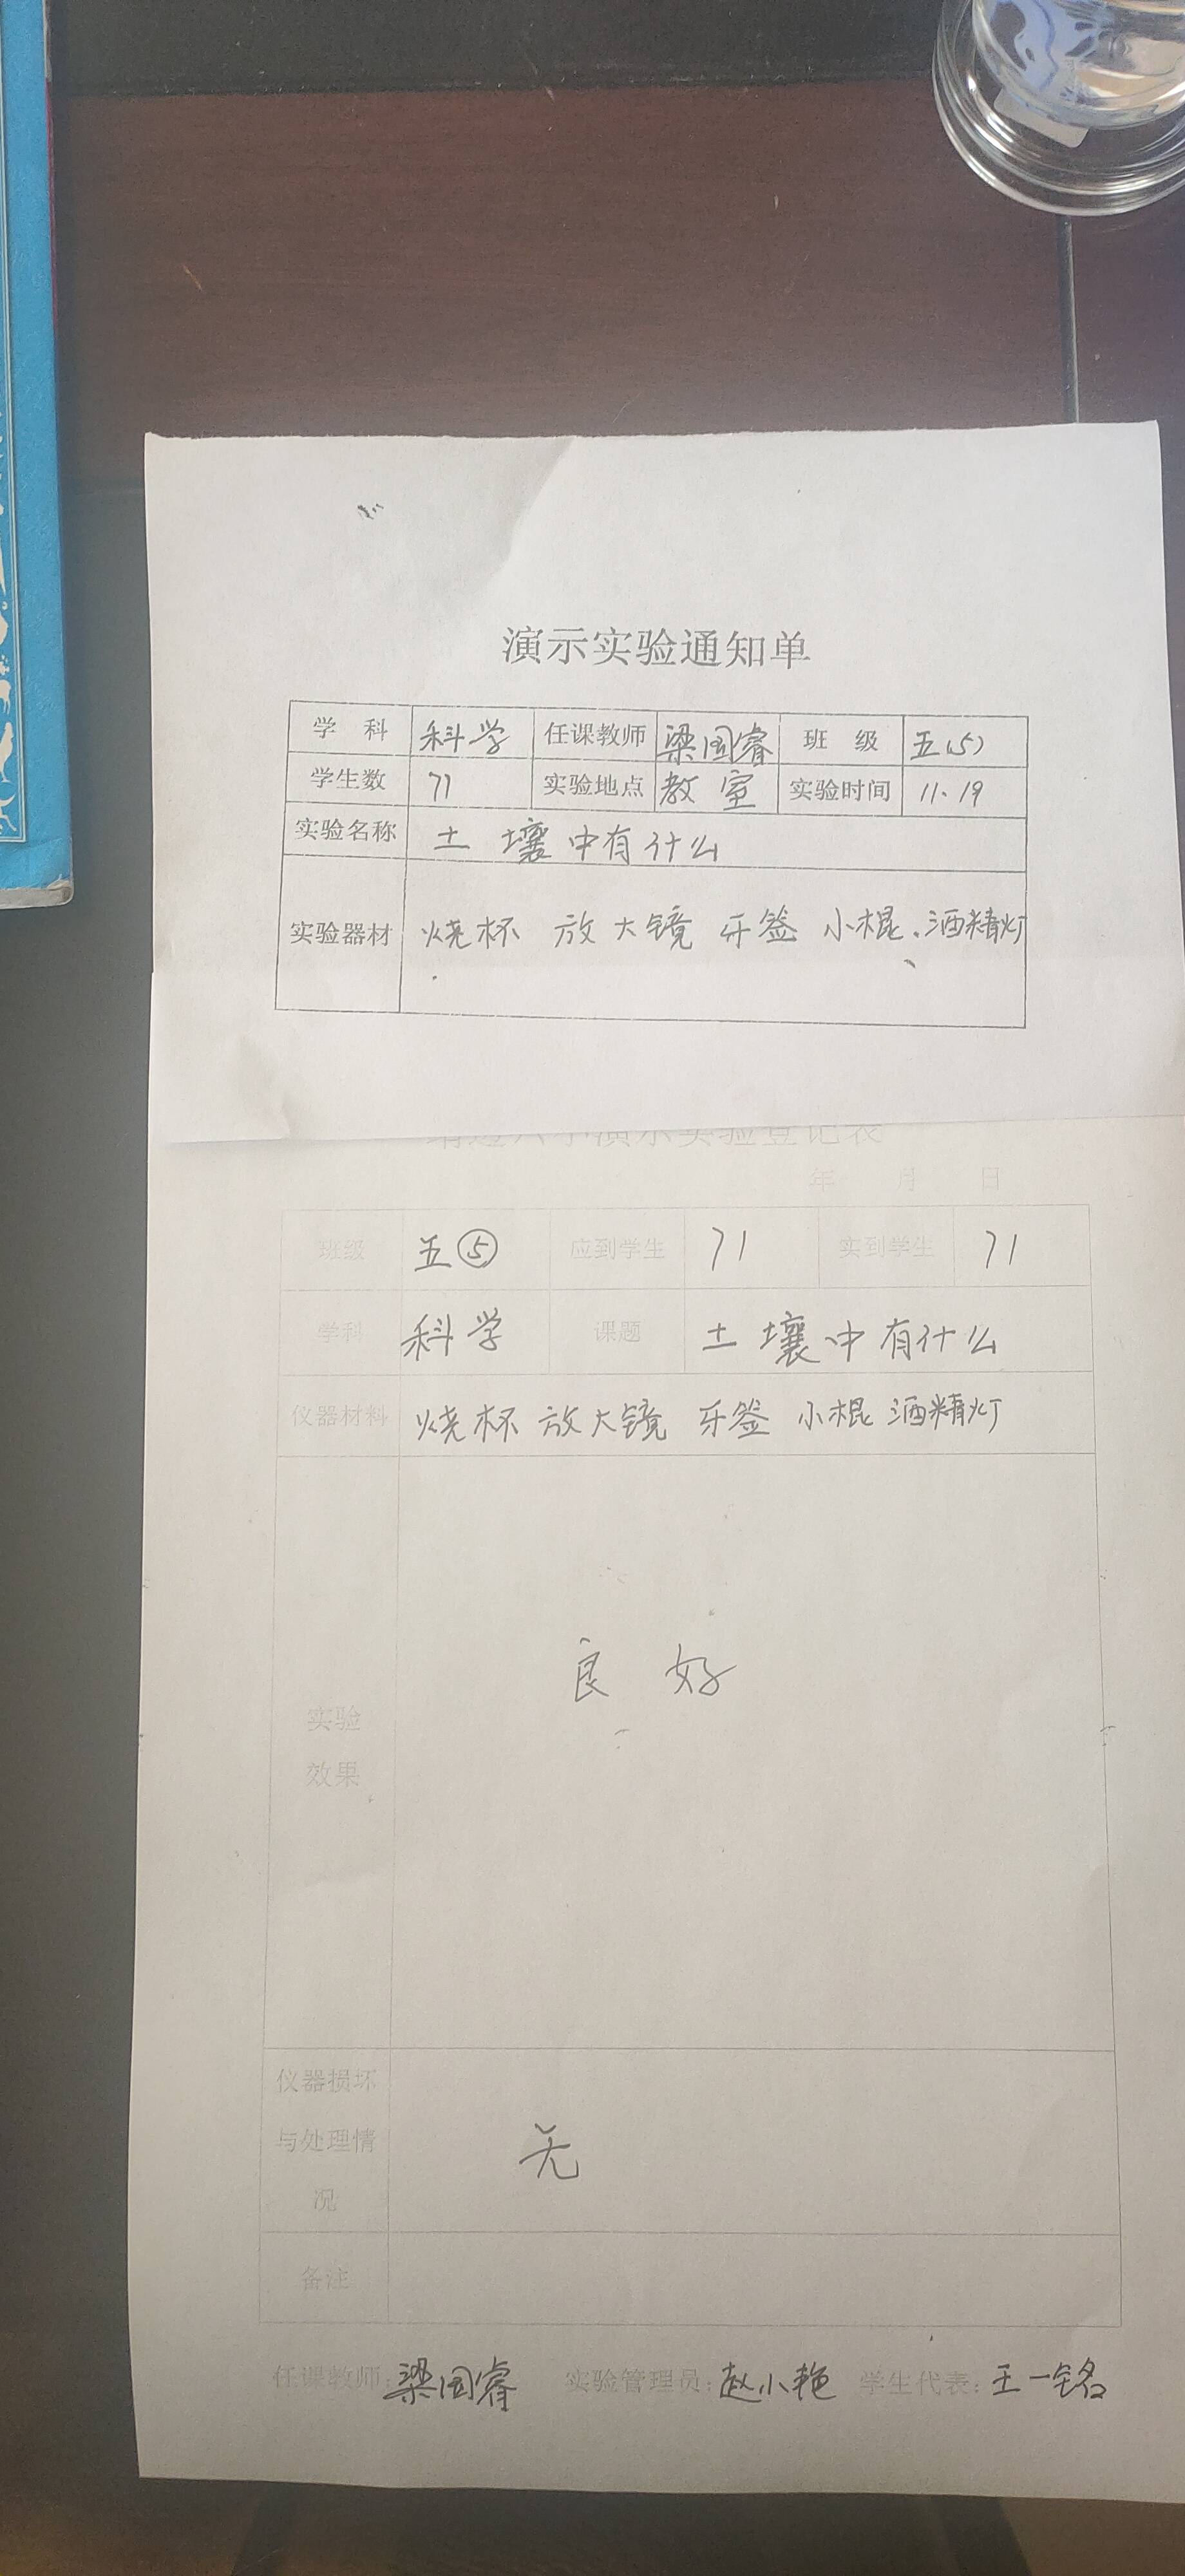 演示实验通知单
学 科 科学 任课教师 梁国睿 班 级 五(5)
学生数 71 实验地点 教室 实验时间 11、19
实验名称 土壤中有什么
实验器材 烧杯 放大镜 牙签 小棍、酒精灯
靖边八小演示实验登记表
年 月 日
班级 五⑤ 应到学生 71 实到学生 71
学科 科学 课题 土壤中有什么
仪器材料 烧杯 放大镜 牙签 小棍 酒精灯
良好
实验
效果
仪器损坏
与处理情
况
无
备注
任课教师:梁国睿 实验管理员:赵小艳 学生代表:王一铭